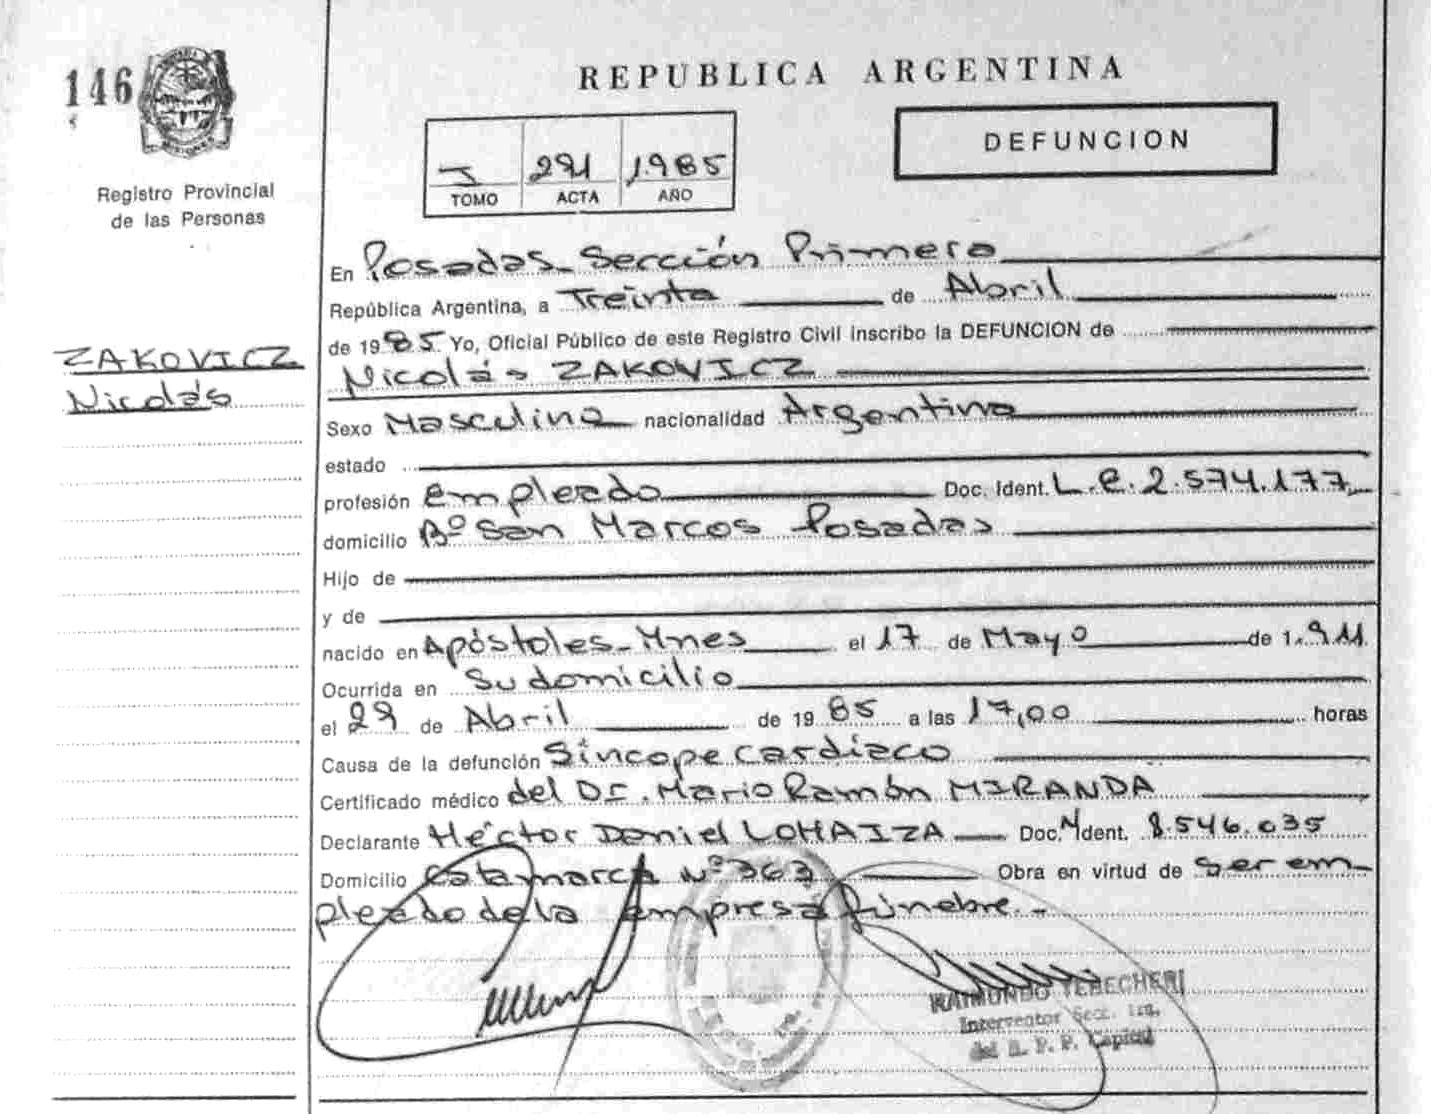 146
MISIONES
Registro Provincial
de las Personas
ZAKOVICZ
Nicolás
REPUBLICA ARGENTINA
I 291 1.985
TOMO ACTA AÑO
DEFUNCION
En Posadas Sección Primera
República Argentina, a Treinta de Abril
de 1985 Yo, Oficial Público de este Registro Civil inscribo la DEFUNCION de
Nicolás ZAKOVICZ
Sexo Masculino nacionalidad Argentina
estado
profesión empleado Doc. Ident. L.E. 2.574.177
domicilio Bº San Marcos Posadas
Hijo de
y de
nacido en Apóstoles - Mnes el 17 de Mayo de 1.911
Ocurrida en Su domicilio
el 29 de Abril de 1985 a las 17,00 horas
Causa de la defunción Síncope cardíaco
Certificado médico del Dr. Mario Ramón MIRANDA
Declarante Héctor Daniel LOHAIZA Doc. Ident. 8.546.035
Domicilio Catamarca Nº 363 Obra en virtud de ser em-
pleado de la empresa fúnebre.-
RAIMUNDO YEBECHERI
Interventor Secc. 1ra.
del R. P. P. Capital